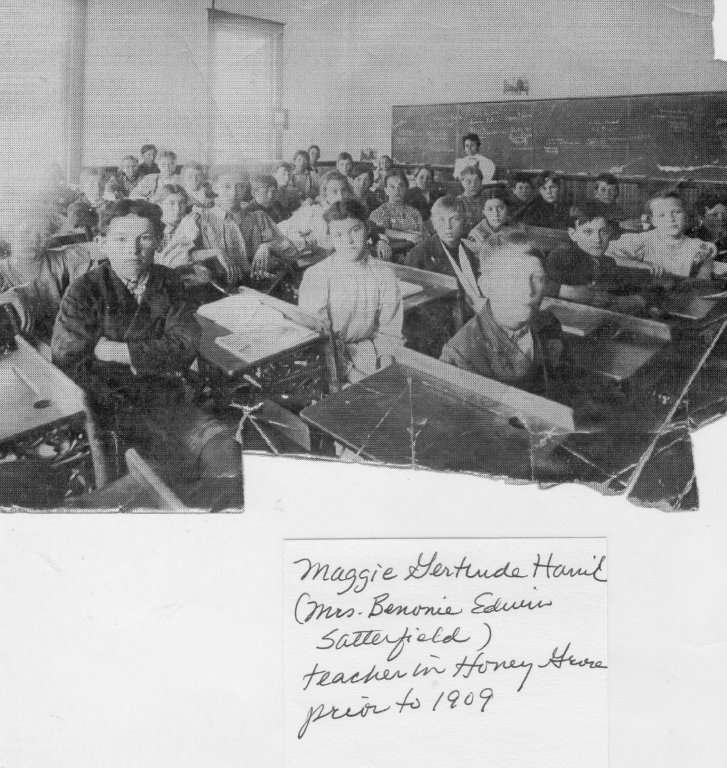 Maggie Gertrude
(Mrs. Benonie Edwin
Satterfield)
teacher in Honey Grove
prior to 1909